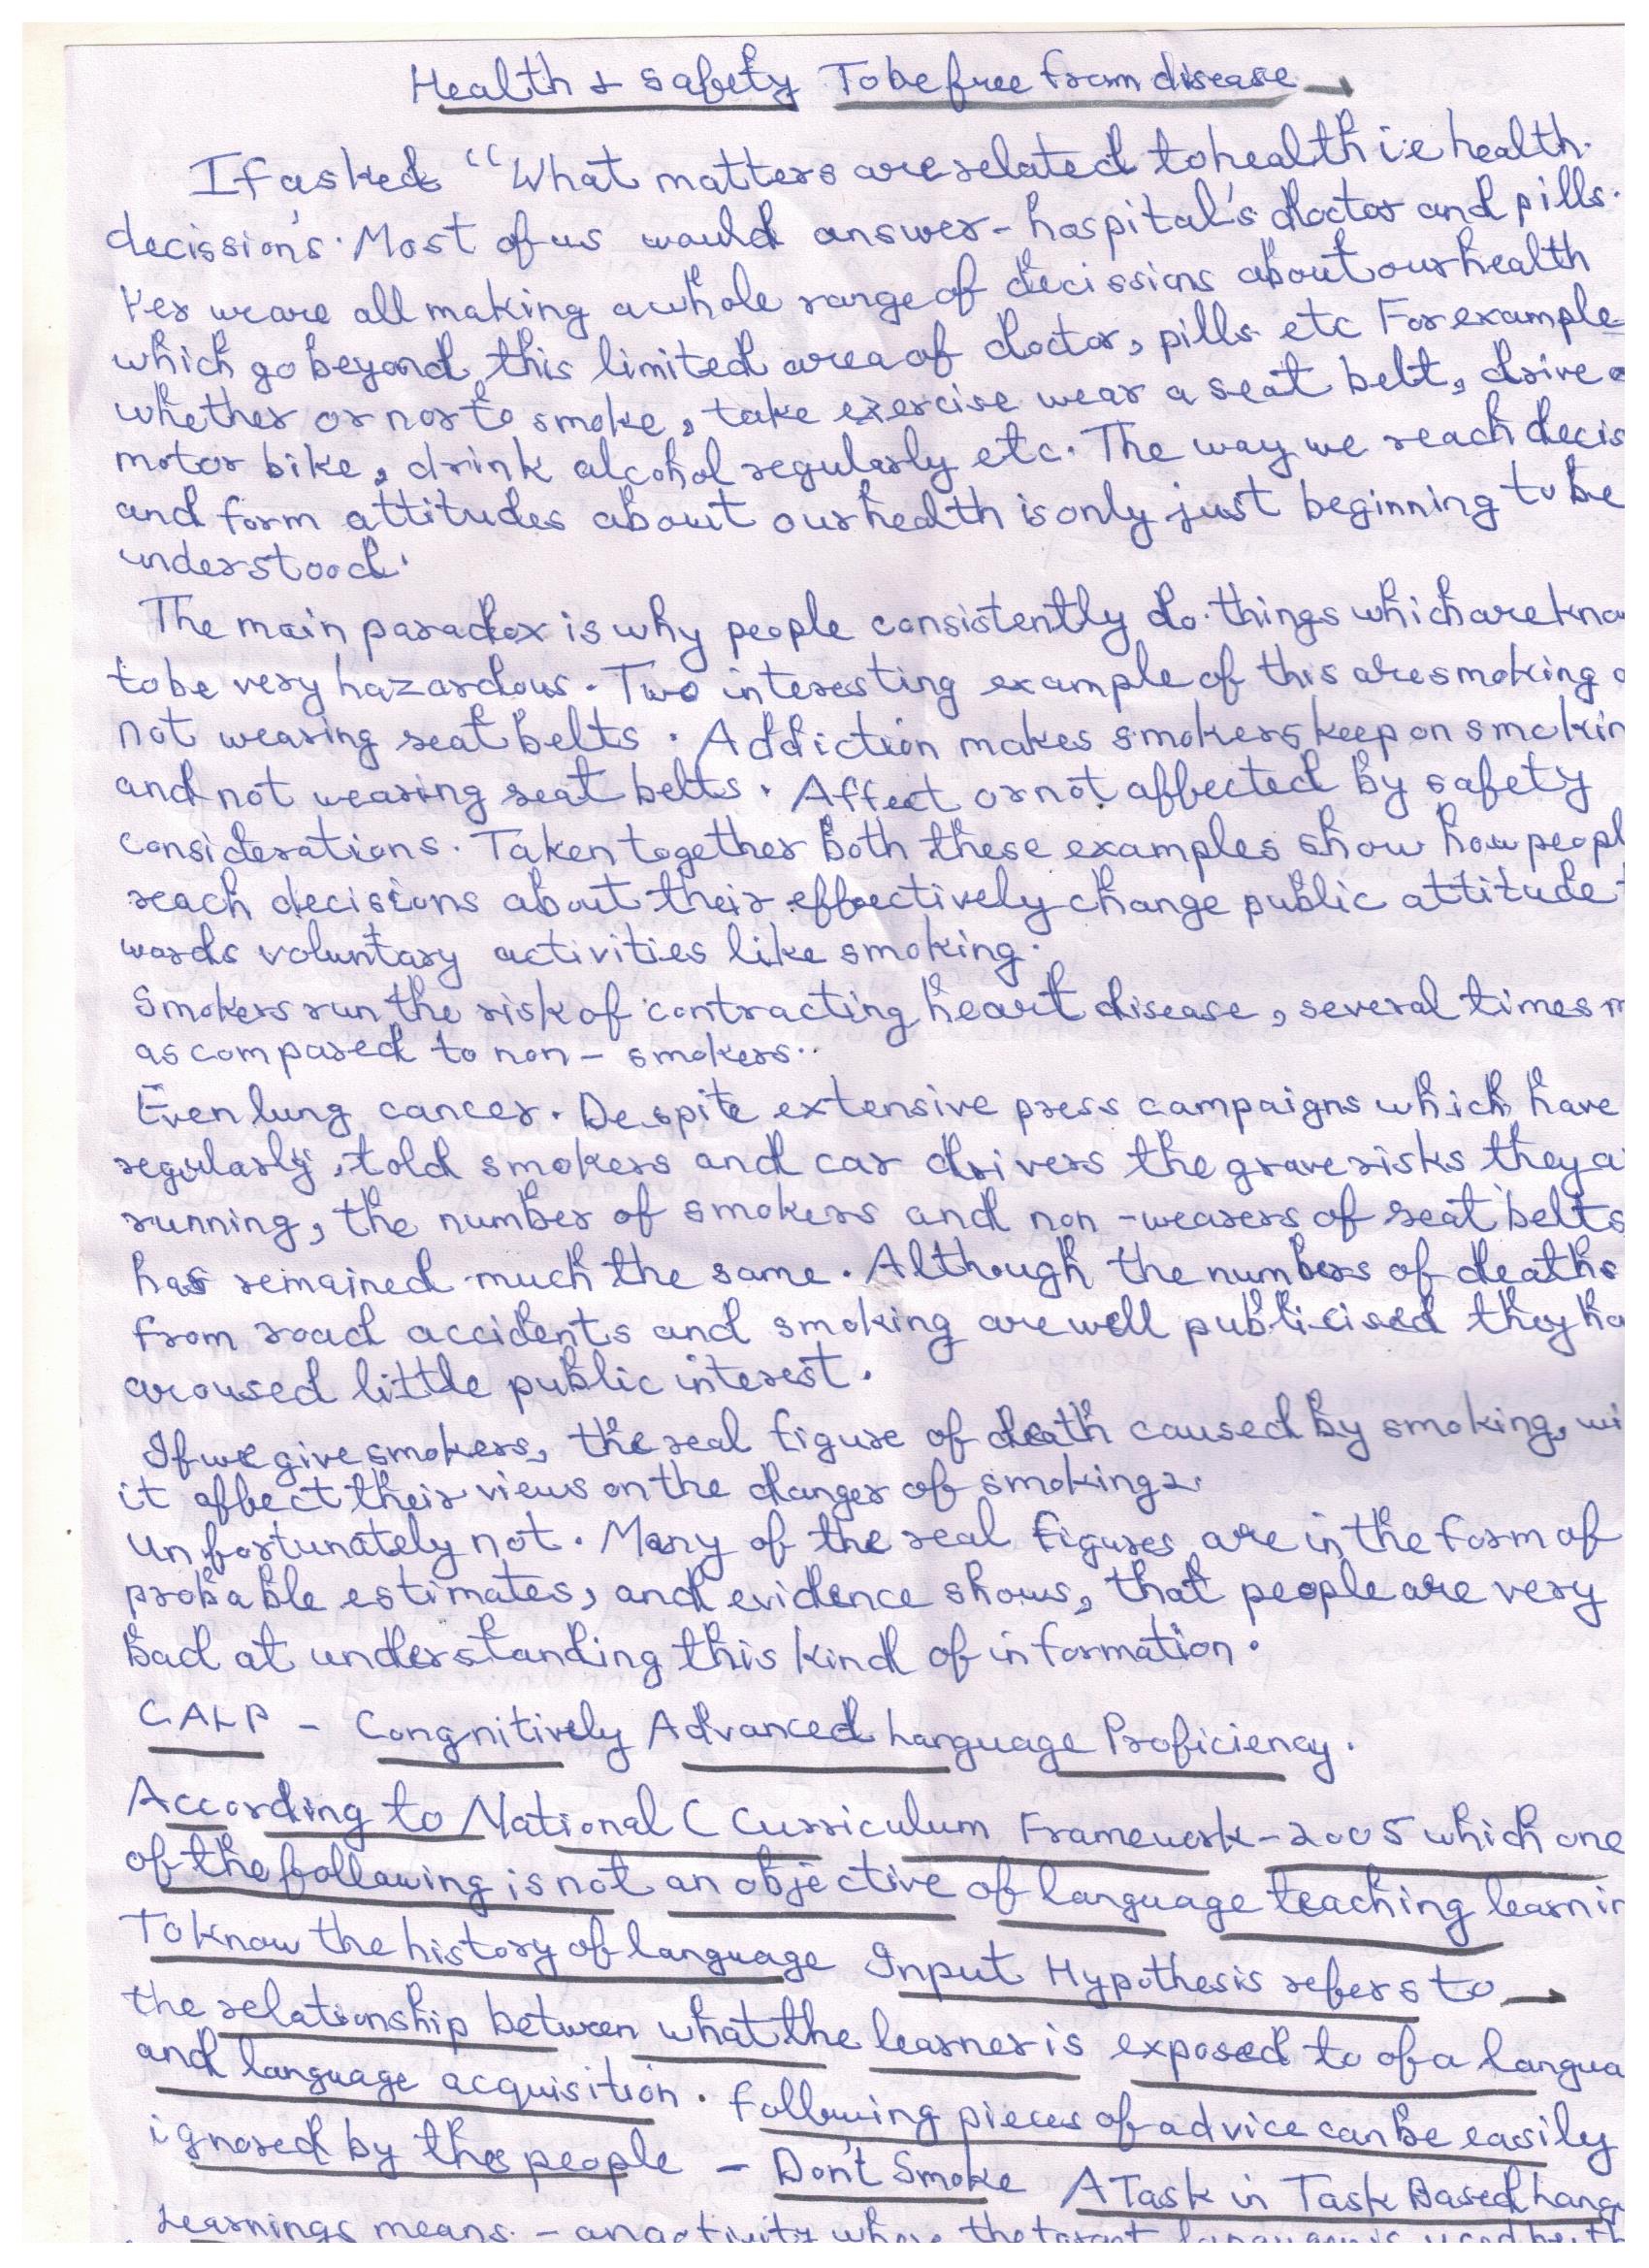 Health & Safety To be free from disease →
If asked "What matters are related to health i.e health.
decission's. Most of us would answer - hospital's doctor and pills.
Yes we are all making a whole range of decissions about our health
which go beyond this limited area of doctor, pills etc For example
whether or nor to smoke, take exercise wear a seat belt, drive a
motor bike, drink alcohol regularly etc. The way we reach decis
and form attitudes about our health is only just beginning to be
understood.
The main paradox is why people consistently do things which are kno
to be very hazardous. Two interesting example of this are smoking a
not wearing seat belts. Addiction makes smokers keep on smokin
and not wearing seat belts. Affect or not affected by safety
considerations. Taken together both these examples show how peopl
reach decisions about their effectively change public attitude t
wards voluntary activities like smoking.
Smokers run the risk of contracting heart disease, several times m
as compared to non - smokers..
Even lung cancer. Despite extensive press campaigns which have
regularly, told smokers and car drivers the grave risks they a
running, the number of smokers and non - wearers of seat belts
has remained much the same. Although the numbers of deaths
from road accidents and smoking are well publicised they ha
aroused little public interest.
If we give smokers, the real figure of death caused by smoking, wi
it affect their views on the danger of smoking2.
Unfortunately not. Many of the real figures are in the form of
probable estimates, and evidence shows, that people are very
bad at understanding this kind of information.
CALP - Congnitively Advanced Language Proficiency.
According to National C Curriculum Framework - 2005 which one
of the following is not an objective of language teaching learnin
To know the history of language Input Hypothesis refers to →
the relationship between what the learner is exposed to of a langua
and language acquisition. Following pieces of advice can be easily
ignored by the people - Don't Smoke A Task in Task Based Lang
Learnings means. - an activity where the target language is used by th